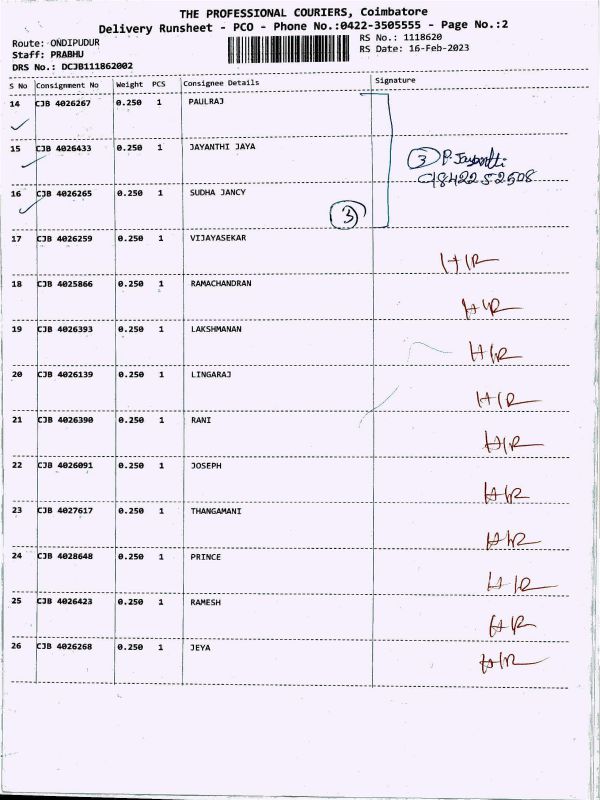 THE PROFESSIONAL COURIERS, Coimbatore
Delivery Runsheet - PCO - Phone No.:0422-3505555 - Page No.:2
Route: ONDIPUDUR
Staff: PRABHU
DRS No.: DCJB111862002
RS No.: 1118620
RS Date: 16-Feb-2023
S No Consignment No Weight PCS Consignee Details Signature
14 CJB 4026267 0.250 1 PAULRAJ
15 CJB 4026433 0.250 1 JAYANTHI JAYA
3 P. Jayanthi
9842252508
16 CJB 4026265 0.250 1 SUDHA JANCY
3
17 CJB 4026259 0.250 1 VIJAYASEKAR
H/R
18 CJB 4025866 0.250 1 RAMACHANDRAN
H/R
19 CJB 4026393 0.250 1 LAKSHMANAN
H/R
20 CJB 4026139 0.250 1 LINGARAJ
H/R
21 CJB 4026390 0.250 1 RANI
H/R
22 CJB 4026091 0.250 1 JOSEPH
H/R
23 CJB 4027617 0.250 1 THANGAMANI
H/R
24 CJB 4028648 0.250 1 PRINCE
H/R
25 CJB 4026423 0.250 1 RAMESH
H/R
26 CJB 4026268 0.250 1 JEYA
H/R